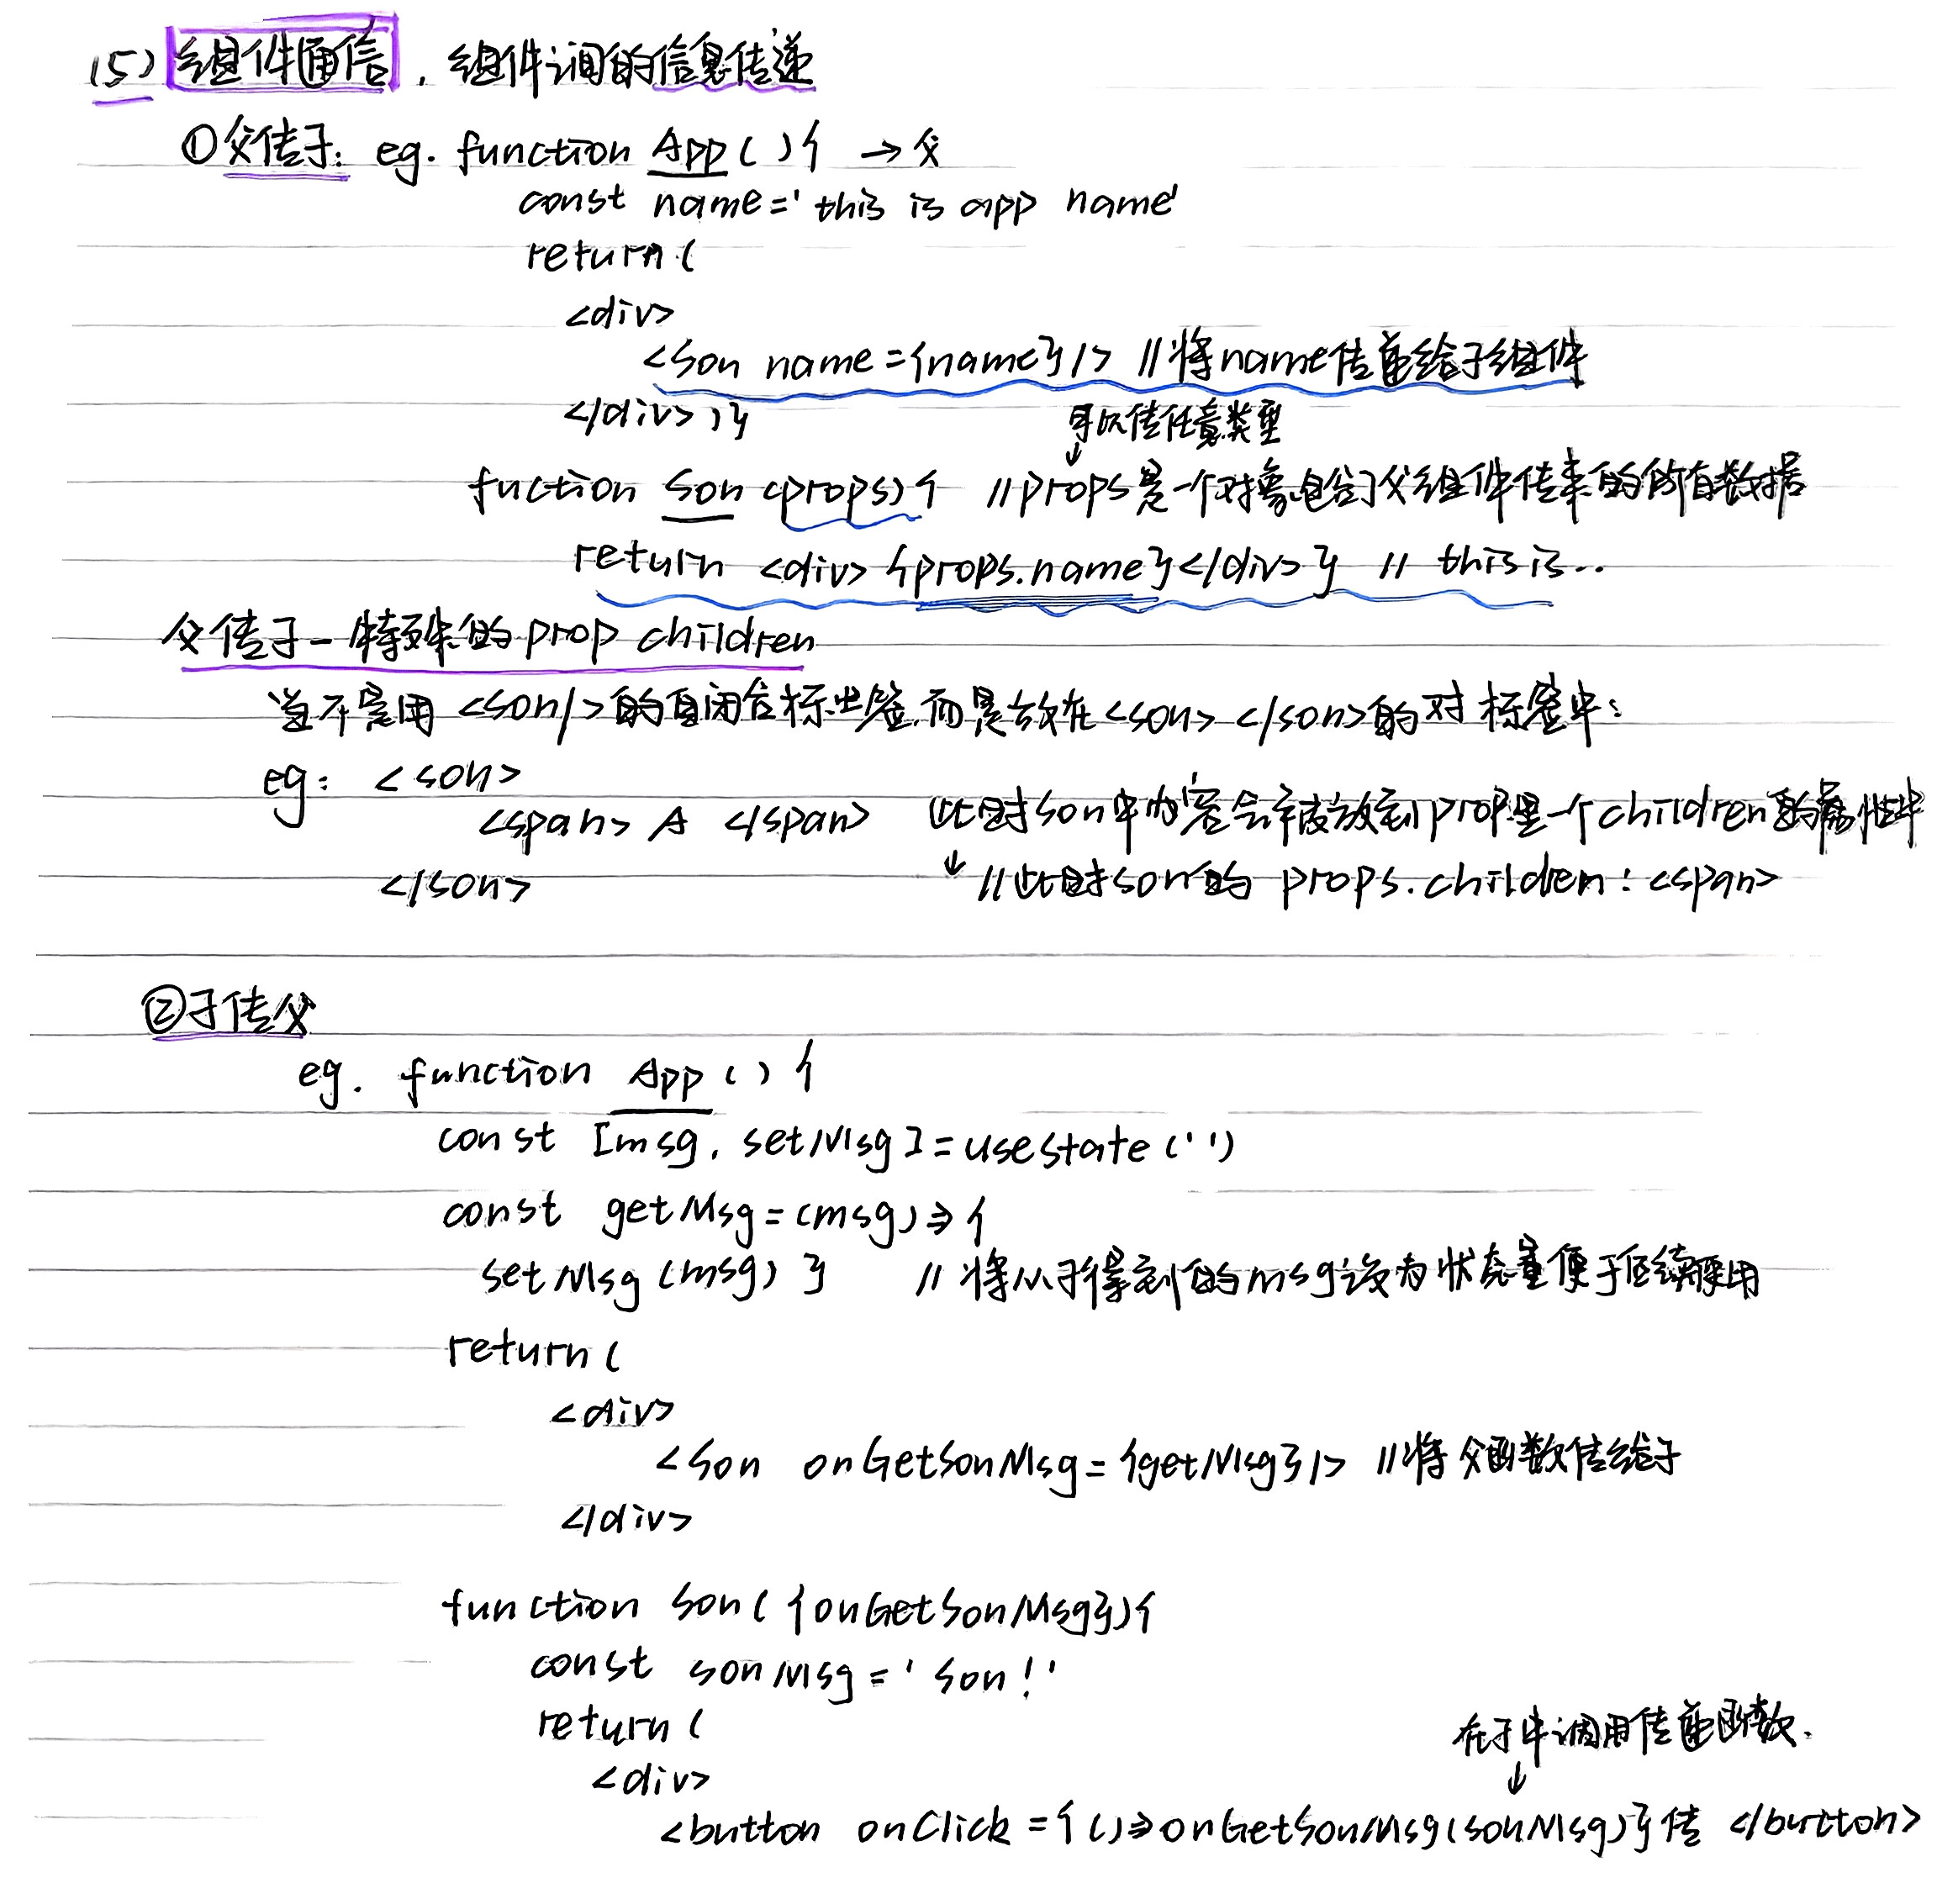 (5) 组件通信. 组件间的信息传递
①父传子: eg. function App(){ → 父
const name='this is app name'
return(
<div>
<Son name={name}/> //将name传递给子组件
</div>)}
可以传任意类型
↓
fuction Son(props){ //props是一个对象包含了父组件传来的所有数据
return <div>{props.name}</div>} // this is..
父传子-特殊的prop children
当不是用<son/>的自闭合标签,而是放在<son> </son>的对标签中:
eg: <son>
<span> A </span> 此时son中内容会被放到prop里一个children的属性中
</son> ↓ //此时son的 props.children: <span>
②子传父
eg. function App(){
const [msg, setMsg]=useState('')
const getMsg=(msg)=>{
setMsg(msg) } //将从子得到的msg设为状态量便于后续使用
return(
<div>
<Son onGetSonMsg={getMsg}/> //将父函数传给子
</div>
function Son({onGetSonMsg}){
const sonMsg='son!'
return(
在子中调用传递函数.
<div> ↓
<button onClick={()=>onGetSonMsg(sonMsg)}传 </button>